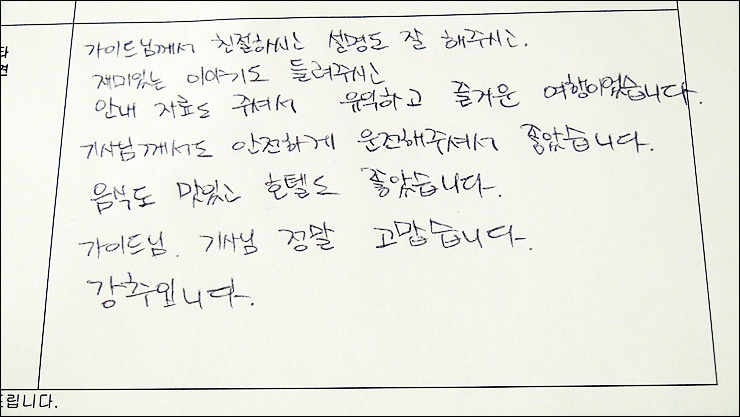 가이드님께서 친절하시고 설명도 잘 해주시고.
재미있는 이야기도 들려주시고
안내 자료도 주셔서 유익하고 즐거운 여행이었습니다.
기사님께서도 안전하게 운전해주셔서 좋았습니다.
음식도 맛있고 호텔도 좋았습니다.
가이드님. 기사님 정말 고맙습니다.
강추입니다.
드립니다.